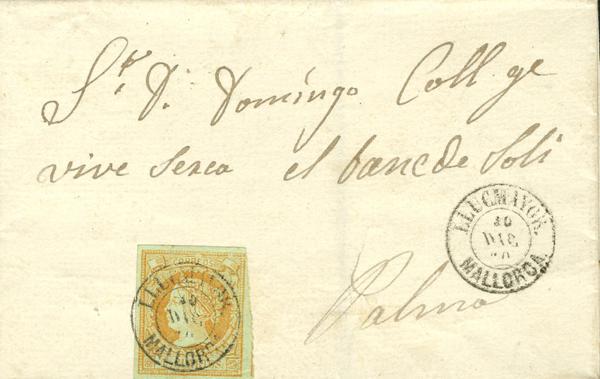 Sr. D. Domingo Coll ge
vive serca el banc de Soli
LLUCMAYOR.
10
DIC
MALLORCA.
Palma
LLUCMAYOR.
10
DIC
MALLORCA.